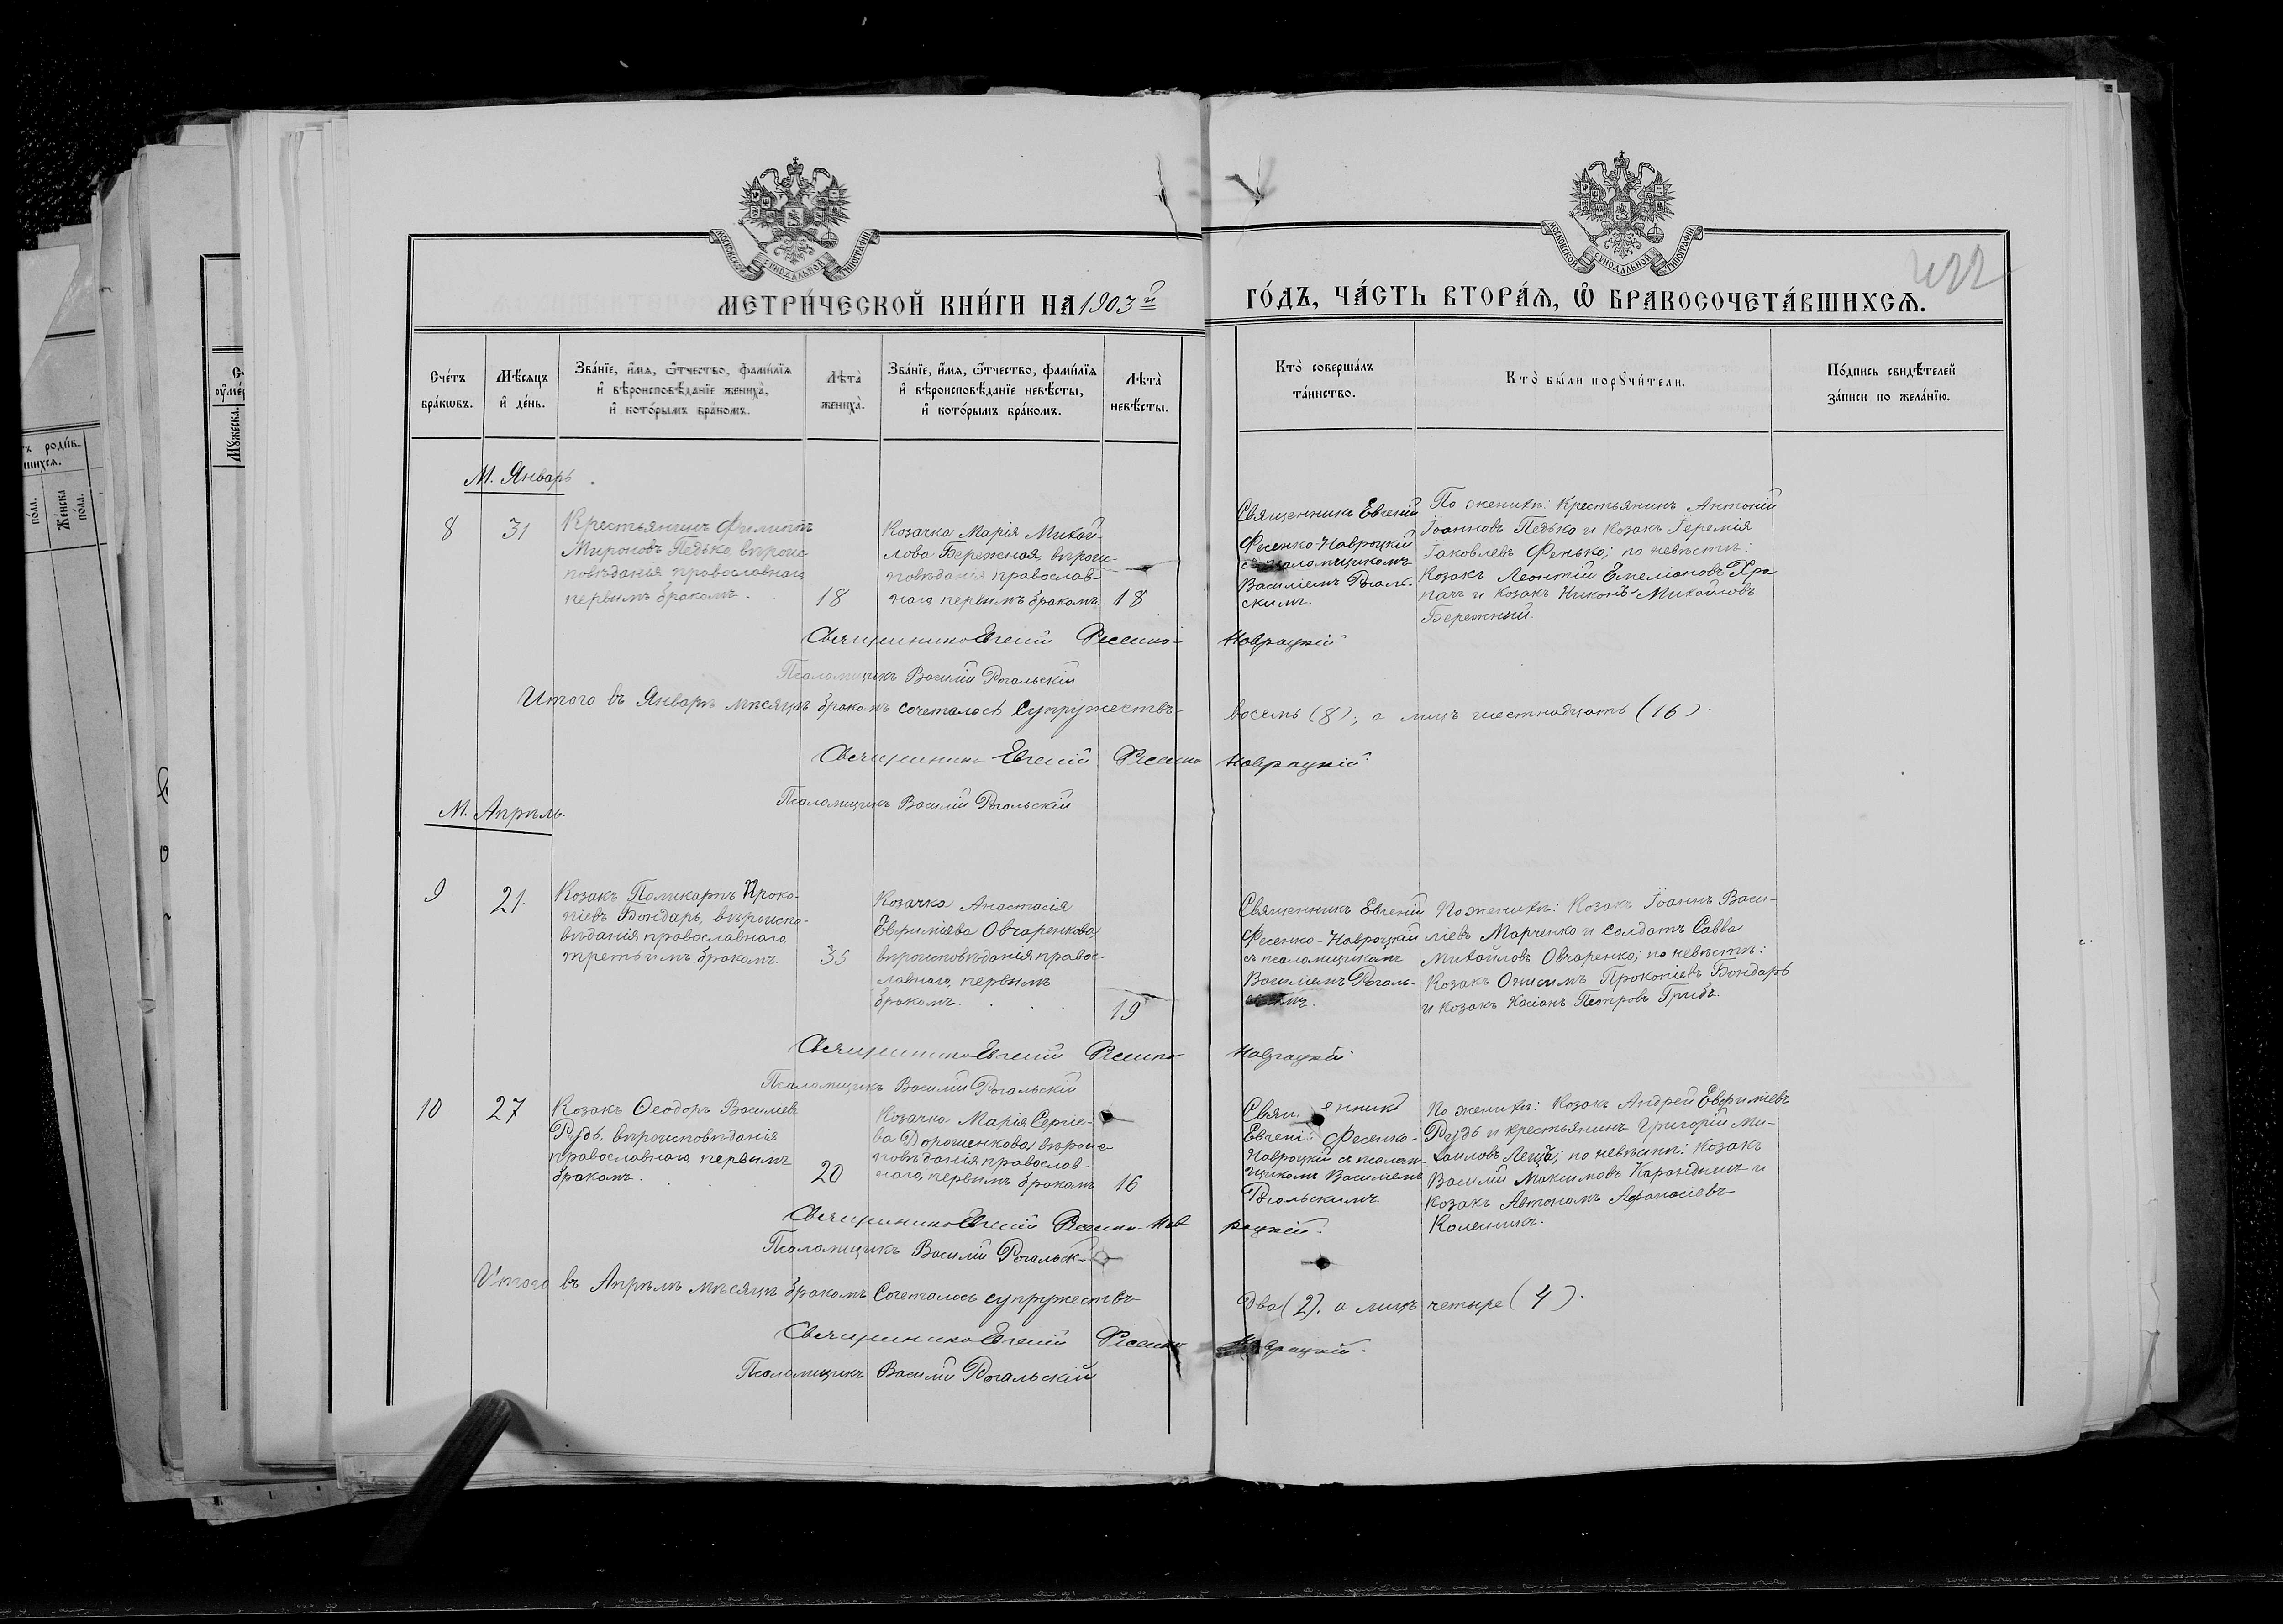 МОСКОВСКОЙ СѴНОДАЛЬНОЙ ТИПОГРАФІИ
МОСКОВСКОЙ СѴНОДАЛЬНОЙ ТИПОГРАФІИ
422
МЕТРИ́ЧЕСКОЙ КНИ́ГИ НА 1903й
ГО́ДЪ, ЧА́СТЬ ВТОРА́Ѧ, Ѽ БРАКОСОЧЕТА́ВШИХСѦ.
Сче́тъ
бра́кѡвъ.
Мѣ́сѧцъ
и҆ де́нь.
Зва́нїе, и҆́мѧ, ѻ҆́тчество, фами́лїѧ
и҆ вѣроисповѣ́данїе жениха̀,
и҆ кото́рымъ бра́комъ.
Лѣта̀
жениха̀.
Зва́нїе, и҆́мѧ, ѻ҆́тчество, фами́лїѧ
и҆ вѣроисповѣ́данїе невѣ́сты,
и҆ кото́рымъ бра́комъ.
Лѣта̀
невѣ́сты.
Кто̀ соверша́лъ
та́инство.
Кто̀ бы́ли порꙋчи́тели.
По́дпись свидѣ́телей
за́писи по жела́нїю.
М. Январь
8
31
Крестьянинъ Филиппъ
Мироновъ Педько, вѣроис-
повѣданія православнаго
первымъ бракомъ.
18
Козачка Марія Михай-
лова Бережная, вѣроис-
повѣданія православ-
наго, первымъ бракомъ.
18
Священникъ Евгеній
Фесенко-Навроцкій
съ псаломщикомъ
Василіемъ Рогаль-
скимъ.
По женихѣ: Крестьянинъ Антоній
Іоанновъ Педько и козакъ Іеремія
Іаковлевъ Фенько; по невѣстѣ:
Козакъ Леонтій Емеліановъ Хра
пачъ и козакъ Никонъ Михайловъ
Бережный.
Священникъ Евгеній Фесенко-Навроцкій
Псаломщикъ Василій Рогальскій
Итого въ Январѣ мѣсяцѣ бракомъ сочеталось супружествъ восемь (8); а лицъ шестнадцать (16).
Священникъ Евгеній Фесенко Навроцкій
Псаломщикъ Василій Рогальскій
М. Апрѣль.
9
21.
Козакъ Поликарпъ Проко-
піевъ Бондарь, вѣроиспо-
вѣданія православнаго,
третьимъ бракомъ.
35
Козачка Анастасія
Евфиміева Овчаренкова
вѣроисповѣданія право-
славнаго, первымъ
бракомъ.
19
Священникъ Евгеній
Фесенко-Навроцкій
съ псаломщикомъ
Василіемъ Рогаль-
скимъ.
По женихѣ: Козакъ Іоаннъ Васи-
ліевъ Марченко и солдатъ Савва
Михайловъ Овчаренко; по невѣстѣ:
Козакъ Онисимъ Прокопіевъ Бондарь
и козакъ Касіанъ Петровъ Грибъ.
Священникъ Евгеній Фесенко Навроцкій
Псаломщикъ Василій Рогальскій
10
27
Козакъ Ѳеодоръ Василіевъ
Рудь, вѣроисповѣданія
православнаго, первымъ
бракомъ.
20
Козачка Марія Сергіе-
ва Дорошенкова, вѣроис-
повѣданія православ-
наго, первымъ бракомъ
16
Священникъ
Евгеній Фесенко-
Навроцкій съ псалом-
щикомъ Василіемъ
Рогальскимъ.
По женихѣ: Козакъ Андрей Евфиміевъ
Рудь и крестьянинъ Григорій Ми-
хаиловъ Леща; по невѣстѣ: Козакъ
Василій Максимовъ Карандашъ и
козакъ Автономъ Аѳанасіевъ
Колесникъ.
Священникъ Евгеній Фесенко-Навроцкій.
Псаломщикъ Василій Рогальск
Итого въ Апрѣлѣ мѣсяцѣ бракомъ сочеталось супружествъ два (2), а лицъ четыре (4).
Священникъ Евгеній Фесенко Навроцкій.
Псаломщикъ Василій Рогальскій